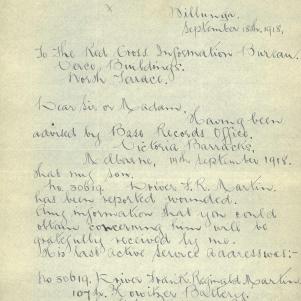 Willunga.
September 18th. 1918.
To The Red Cross Information Bureau.
Verco Buildings.
North Terrace.
Dear Sir or Madam,
Having been
advised by Base Records Office,
Victoria Barracks,
Melbourne, 14th September 1918.
that my son.
No. 30619. Driver F. R. Martin
has been reported wounded.
Any information that you could
obtain concerning him will be
gratefully received by me.
His last active service address was:-
No 30619. Driver Frank Reginald Martin
107th Howitzer Battery.